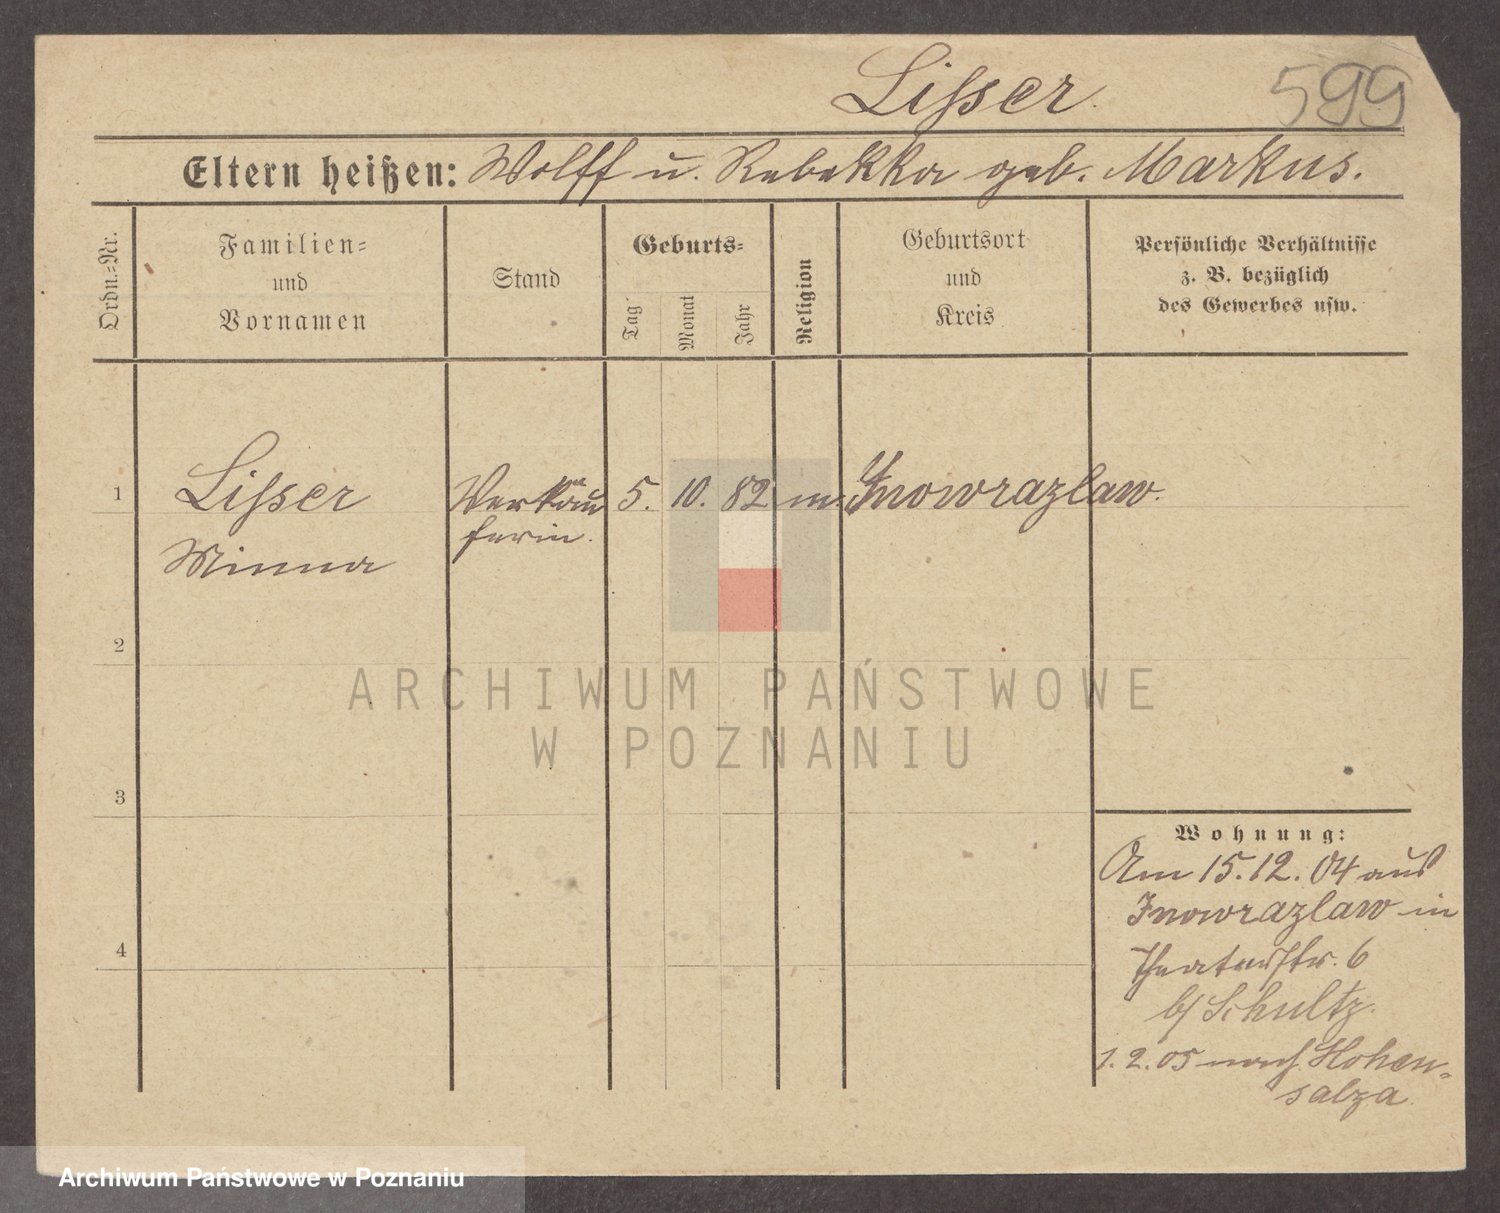 Lißer. 599
Eltern heißen: Wolff u. Rebekka geb. Markus.
Ordn.-Nr.
Familien-
und
Vornamen
Stand
Geburts-
Tag
Monat
Jahr
Religion
Geburtsort
und
Kreis
Persönliche Verhältnisse
z. B. bezüglich
des Gewerbes usw.
1 Lißer Verkäu 5. 10. 82 m. Inowrazlaw.
Minna ferin.
2
3
4
Wohnung:
Am 15.12.04 aus
Inowrazlaw in
Theaterstr. 6
b/ Schultz.
1.2.05 nach Hohen-
salza.
ARCHIWUM PAŃSTWOWE
W POZNANIU
Archiwum Państwowe w Poznaniu